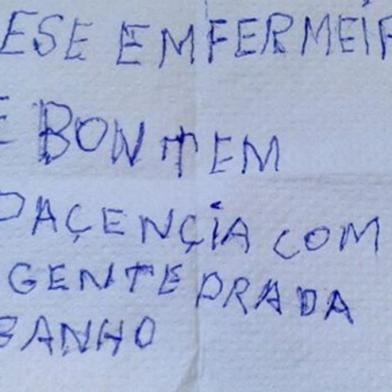 ESE EMFERMEIR
E BON TEM
PAÇENÇIA COM
GENTE PRA DA
BANHO